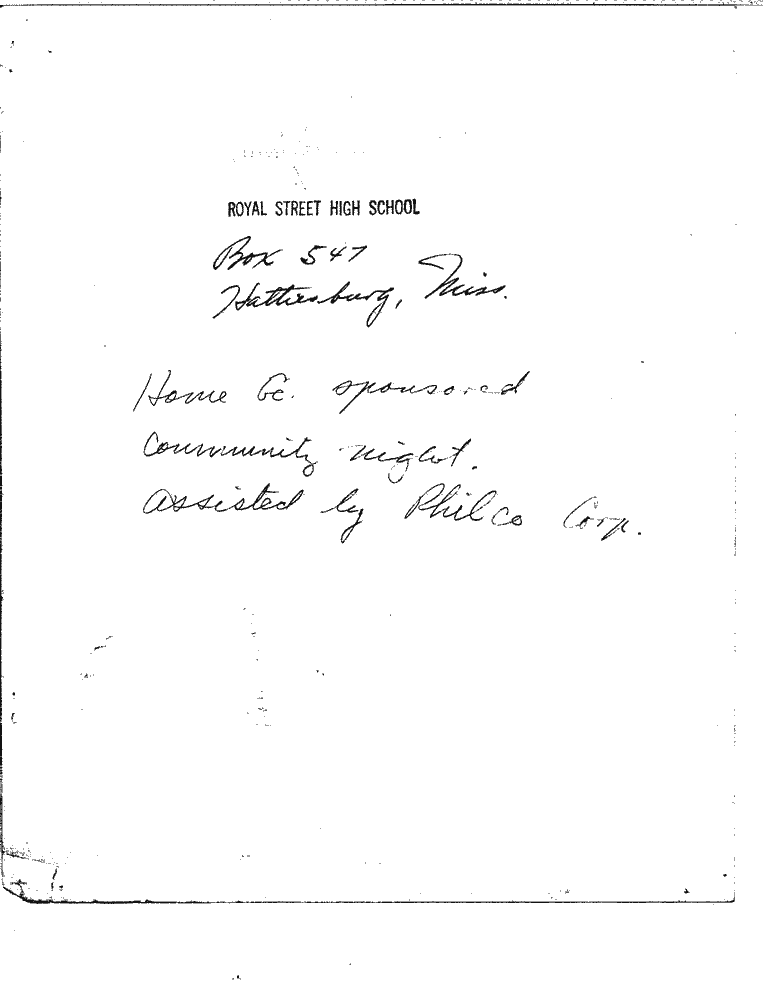 ROYAL STREET HIGH SCHOOL
Box 547
Hattiesburg, Miss.
Home Ec. sponsored
Community night.
assisted by Philco Corp.